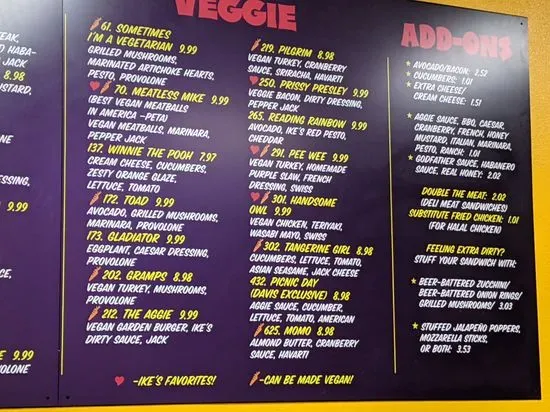 VEGGIE
61. SOMETIMES
I'M A VEGETARIAN 9.99
GRILLED MUSHROOMS,
MARINATED ARTICHOKE HEARTS,
PESTO, PROVOLONE
70. MEATLESS MIKE 9.99
(BEST VEGAN MEATBALLS
IN AMERICA -PETA)
VEGAN MEATBALLS, MARINARA,
PEPPER JACK
137. WINNIE THE POOH 7.97
CREAM CHEESE, CUCUMBERS,
ZESTY ORANGE GLAZE,
LETTUCE, TOMATO
172. TOAD 9.99
AVOCADO, GRILLED MUSHROOMS,
MARINARA, PROVOLONE
173. GLADIATOR 9.99
EGGPLANT, CAESAR DRESSING,
PROVOLONE
202. GRAMPS 8.98
VEGAN TURKEY, MUSHROOMS,
PROVOLONE
212. THE AGGIE 9.99
VEGAN GARDEN BURGER, IKE'S
DIRTY SAUCE, JACK
219. PILGRIM 8.98
VEGAN TURKEY, CRANBERRY
SAUCE, SRIRACHA, HAVARTI
250. PRISSY PRESLEY 9.99
VEGGIE BACON, DIRTY DRESSING,
PEPPER JACK
265. READING RAINBOW 9.99
AVOCADO, IKE'S RED PESTO,
CHEDDAR
291. PEE WEE 9.99
VEGAN TURKEY, HOMEMADE
PURPLE SLAW, FRENCH
DRESSING, SWISS
301. HANDSOME
OWL 9.99
VEGAN CHICKEN, TERIYAKI,
WASABI MAYO, SWISS
302. TANGERINE GIRL 8.98
CUCUMBERS, LETTUCE, TOMATO,
ASIAN SEASAME, JACK CHEESE
432. PICNIC DAY
(DAVIS EXCLUSIVE) 8.98
AGGIE SAUCE, CUCUMBER,
LETTUCE, TOMATO, AMERICAN
625. MOMO 8.98
ALMOND BUTTER, CRANBERRY
SAUCE, HAVARTI
-IKE'S FAVORITES!
-CAN BE MADE VEGAN!
ADD-ONS
* AVOCADO/BACON: 2.52
* CUCUMBERS: 1.01
* EXTRA CHEESE/
CREAM CHEESE: 1.51
* AGGIE SAUCE, BBQ, CAESAR,
CRANBERRY, FRENCH, HONEY
MUSTARD, ITALIAN, MARINARA,
PESTO, RANCH: 1.01
* GODFATHER SAUCE, HABANERO
SAUCE, REAL HONEY: 2.02
DOUBLE THE MEAT: 2.02
(DELI MEAT SANDWICHES)
SUBSTITUTE FRIED CHICKEN: 1.01
(FOR HALAL CHICKEN)
FEELING EXTRA DIRTY?
STUFF YOUR SANDWICH WITH:
* BEER-BATTERED ZUCCHINI/
BEER-BATTERED ONION RINGS/
GRILLED MUSHROOMS/ 3.03
* STUFFED JALAPEÑO POPPERS,
MOZZARELLA STICKS,
OR BOTH: 3.53
HABA-
JACK
8.98
9.99
9.99